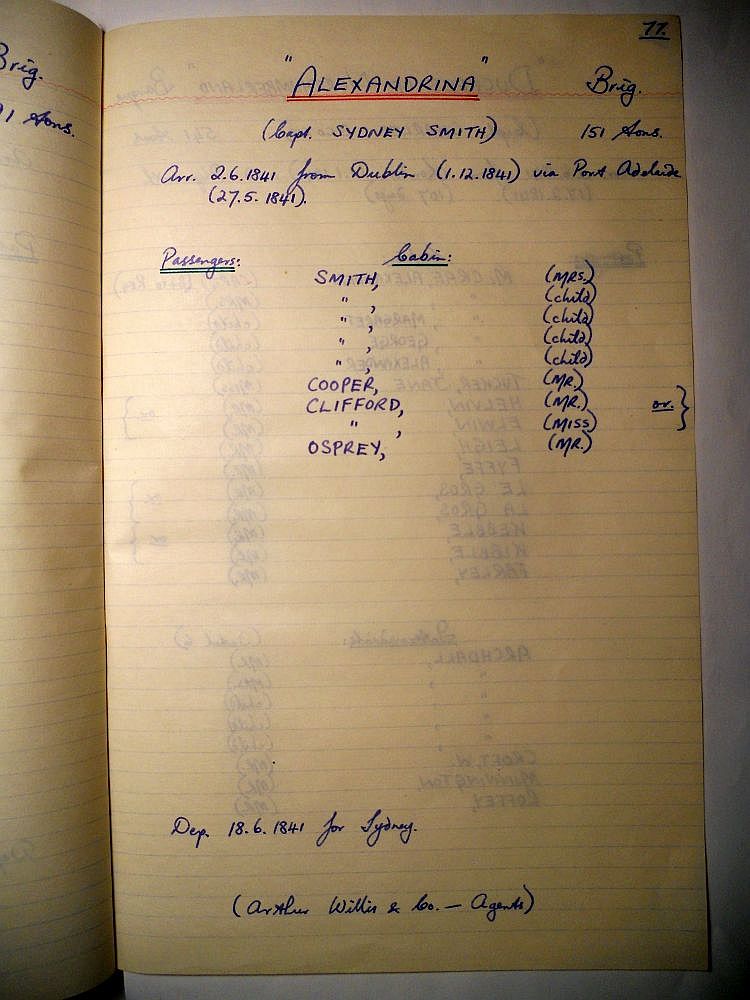 77.
"ALEXANDRINA" Brig.
(Capt. SYDNEY SMITH) 151 tons.
Arr. 2.6.1841 from Dublin (1.12.1841) via Port Adelaide
(27.5.1841).
Passengers: Cabin:
SMITH, (MRS.)
" , (child)
" , (child)
" , (child)
" , (child)
COOPER, (MR.)
CLIFFORD, (MR.) or. }
" , (MISS)
OSPREY, (MR.)
Dep. 18.6.1841 for Sydney.
(Arthur Willis & Co. — Agents)
Brig.
91 tons.